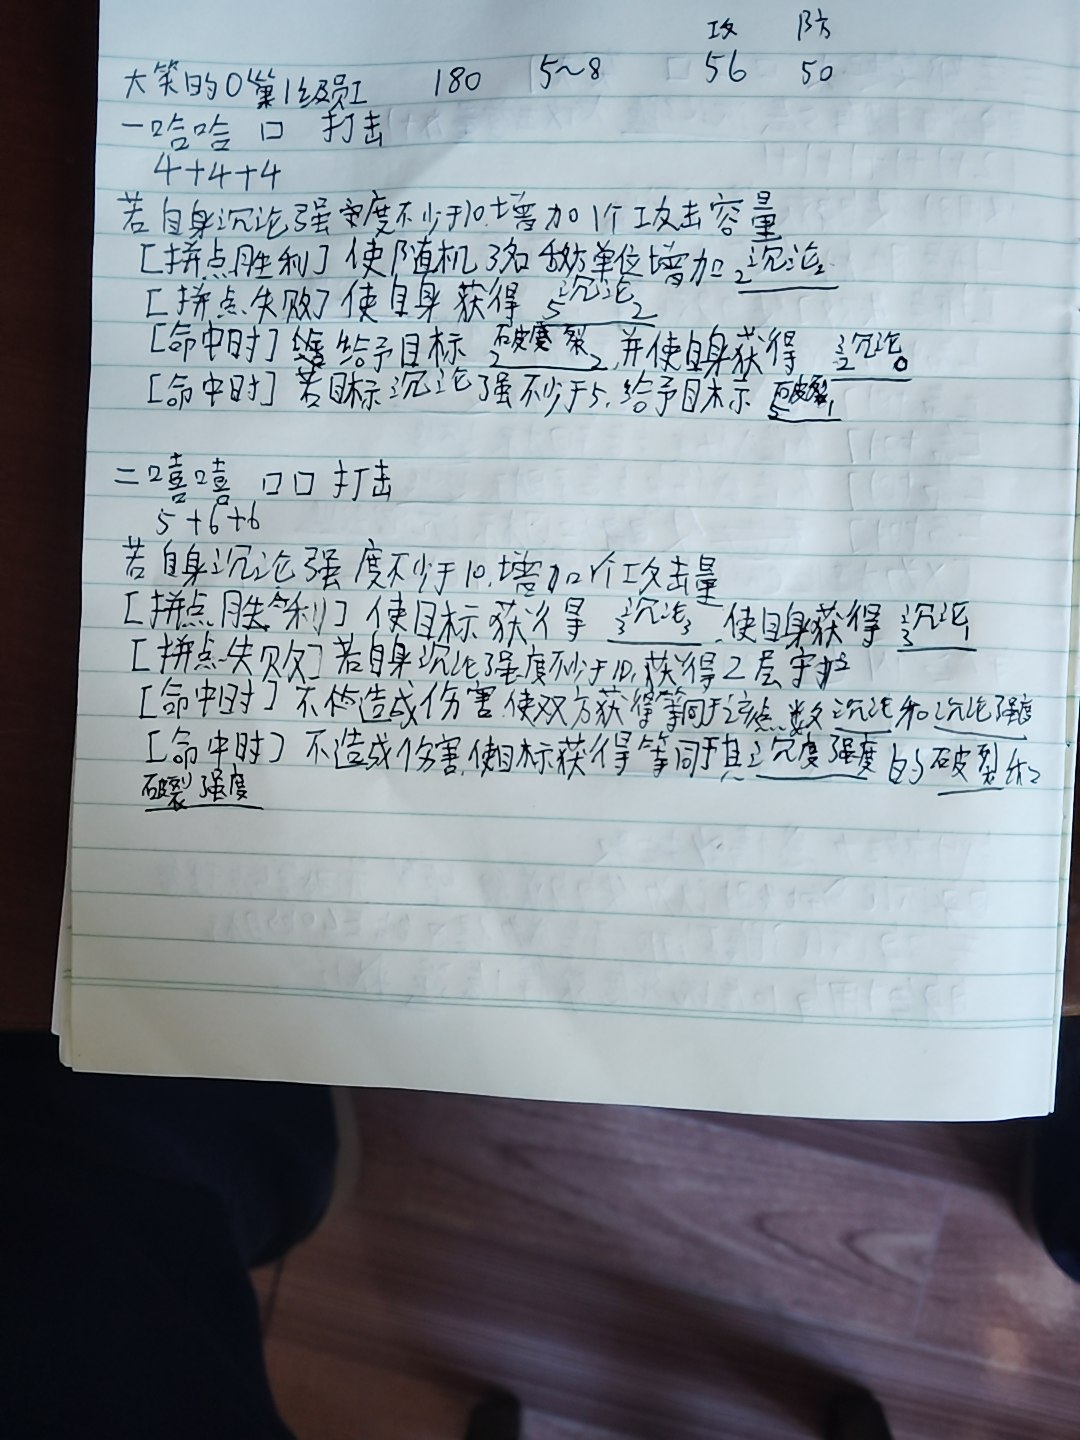 攻 防
大笑的0第1级员工 180 5~8 56 50
一哈哈 口 打击
4+4+4
若自身沉沦强度不少于10.增加1个攻击容量
[拼点胜利] 使随机3名敌方单位增加 2沉沦2
[拼点失败] 使自身获得 5沉沦2
[命中时] 给予目标 2破裂2,并使自身获得 2沉沦0
[命中时] 若目标沉沦强不少于5.给予目标 5破裂1
二嘻嘻 口口 打击
5+6+6
若自身沉沦强度不少于10.增加1个攻击量
[拼点胜利] 使目标获得 3沉沦3.使自身获得 3沉沦1
[拼点失败] 若自身沉沦强度不少于10,获得2层守护
[命中时] 不造成伤害.使双方获得等同于该点数沉沦和沉沦强度
[命中时] 不造成伤害,使目标获得等同于其沉度强度的破裂和
破裂强度